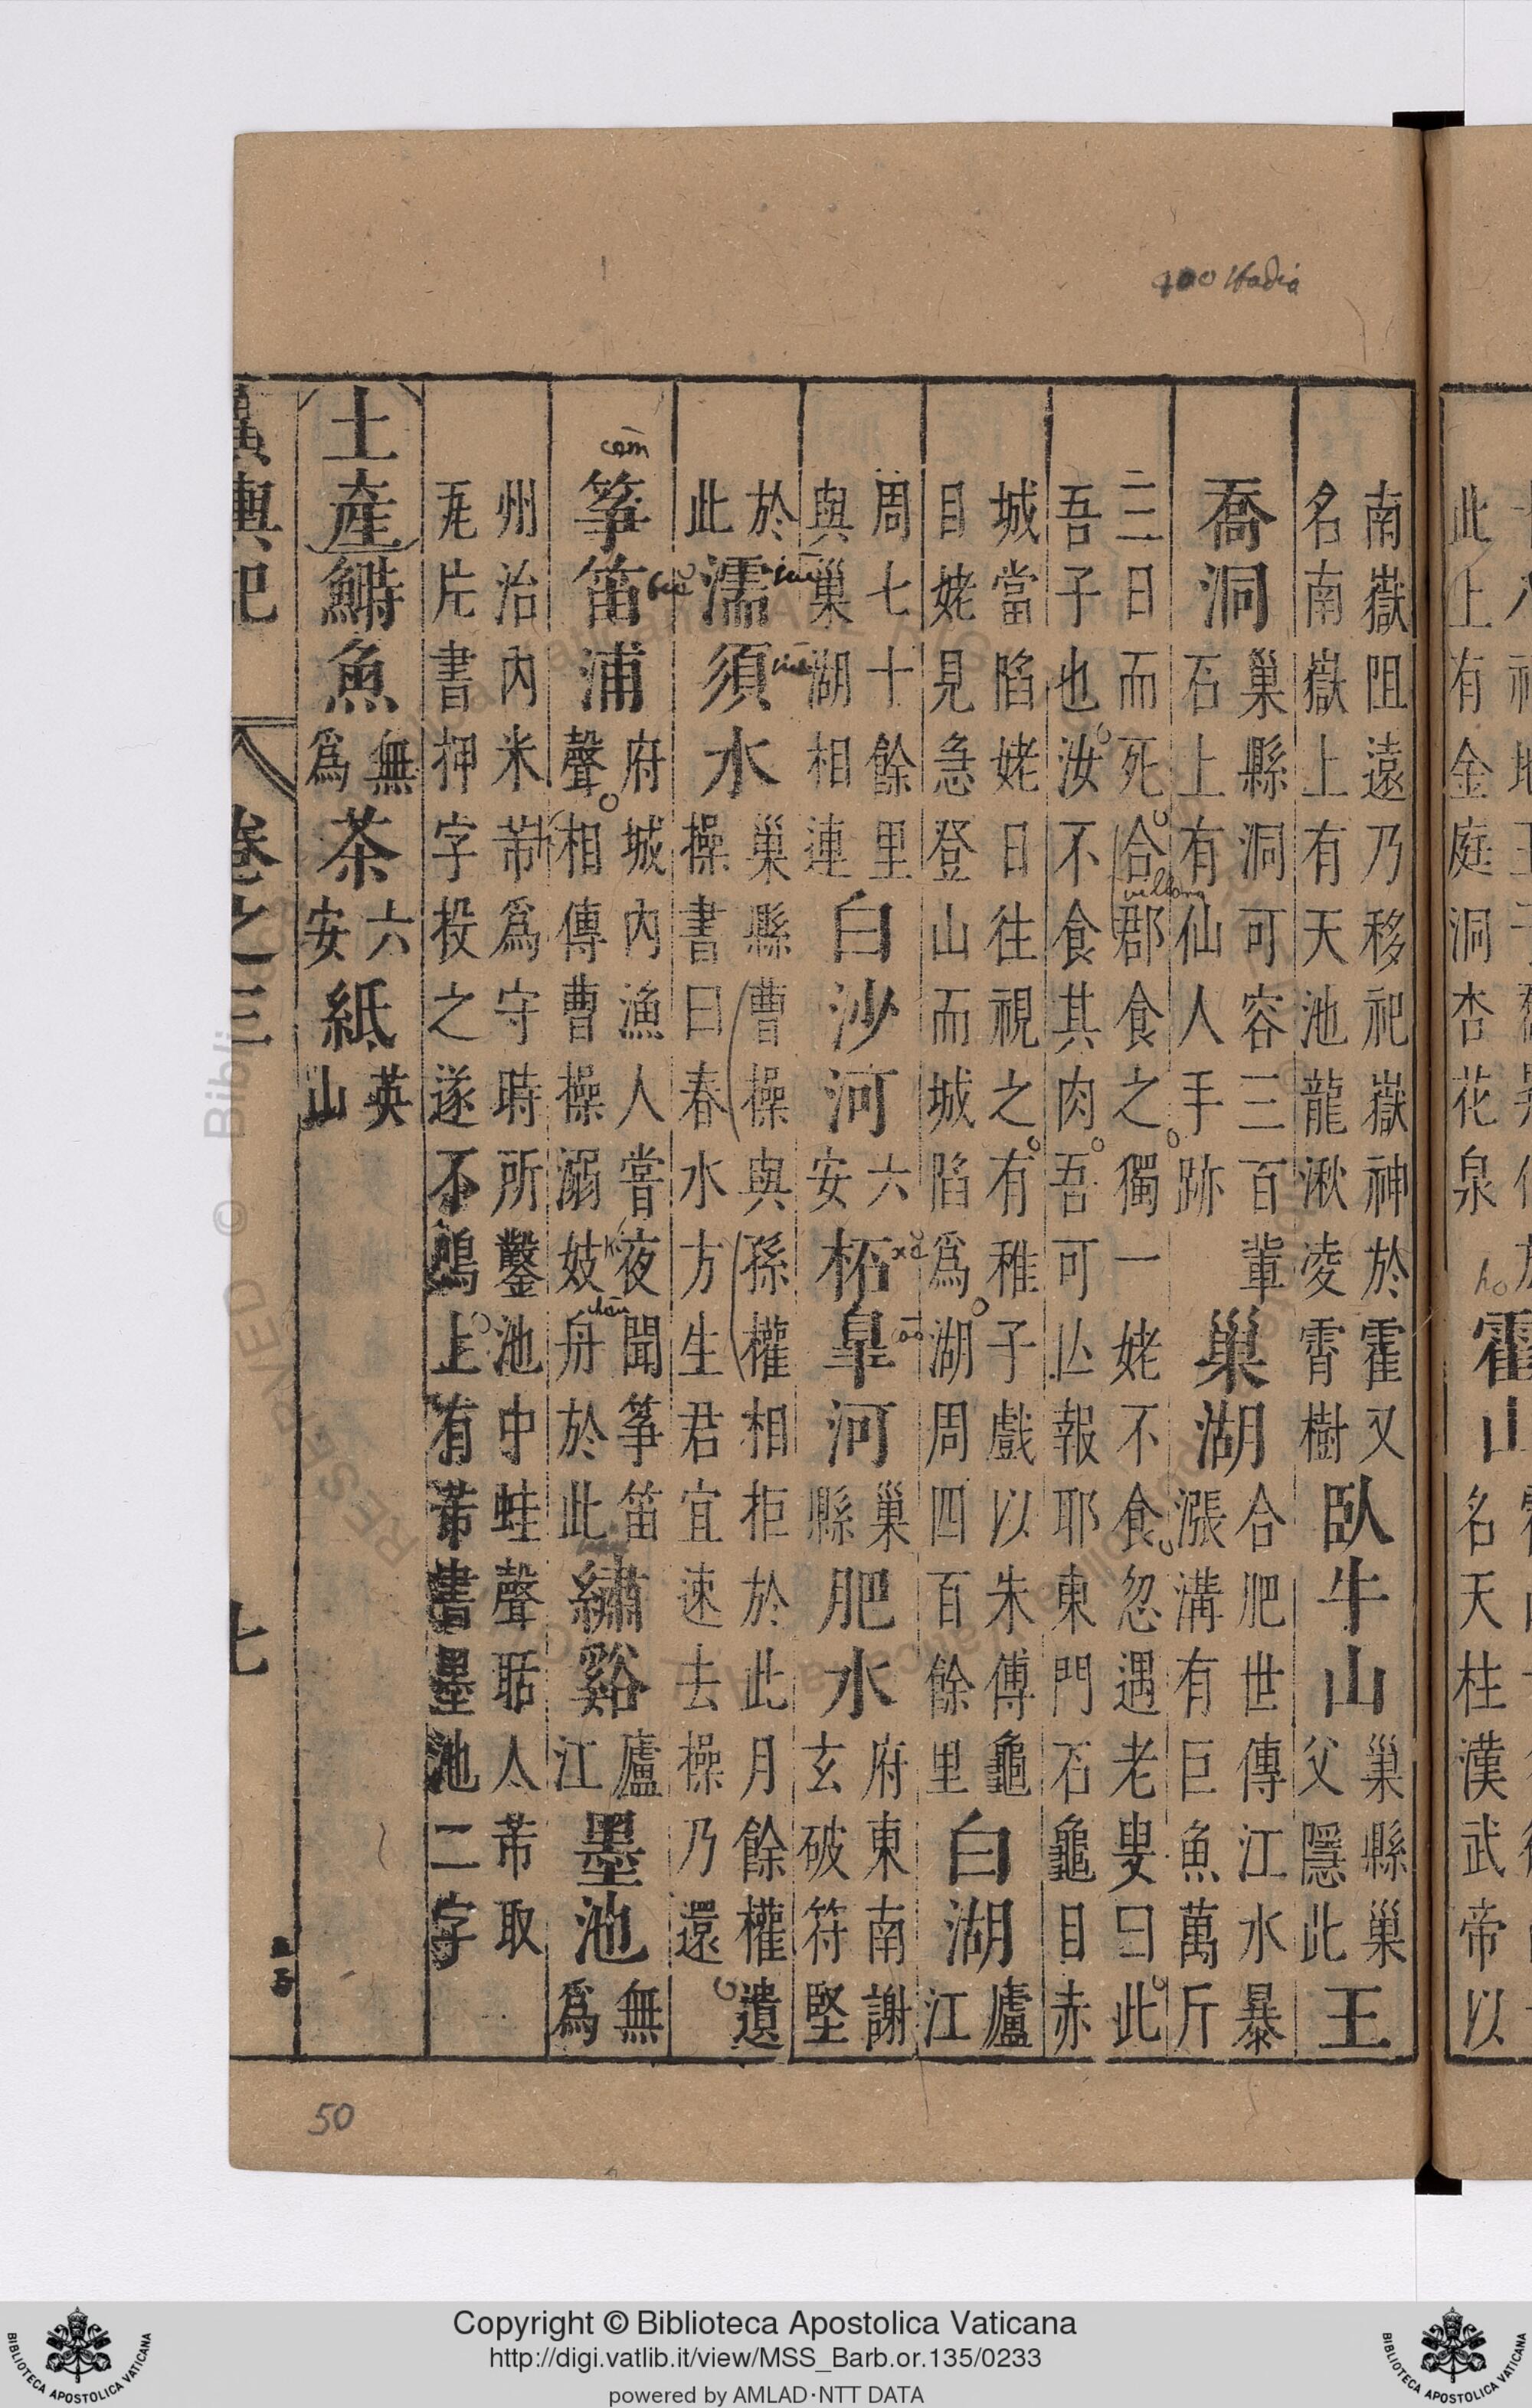 400 stadia
南嶽阻遠乃移祀嶽神於霍又
名南嶽上有天池龍湫凌霄樹
臥牛山
巢縣巢
父隱此
王
喬洞
巢縣洞可容三百輩
石上有仙人手跡
巢湖
合肥世傳江水暴
漲溝有巨魚萬斤
三日而死合郡食之獨一姥不食忽遇老叟曰此
吾子也汝不食其肉吾可亾報耶東門石龜目赤
城當陷姥日往視之有稚子戲以朱傅龜
目姥見急登山而城陷爲湖周四百餘里
白湖
廬
江
周七十餘里
與巢湖相連
白沙河
六
安
柘皐河
巢
縣
肥水
府東南謝
玄破符堅
於
此
濡須水
巢縣曹操與孫權相拒於此月餘權遺
操書曰春水方生君宜速去操乃還
筝笛浦
府城內漁人嘗夜聞筝笛
聲相傳曹操溺妓舟於此
繡谿
廬
江
墨池
無
爲
州治內米芾爲守時所鑿池中蛙聲聒人芾取
瓦片書押字投之遂不鳴上有芾書墨池二字
土產
鰣魚
無
爲
茶
六
安
紙
英
山
廣輿記
卷之三
七
cem
xo
chan
50
此上有金庭洞杏花泉
霍山
名天柱漢武帝以
Copyright © Biblioteca Apostolica Vaticana
http://digi.vatlib.it/view/MSS_Barb.or.135/0233
powered by AMLAD·NTT DATA
BIBLIOTECA APOSTOLICA VATICANA
BIBLIOTECA APOSTOLICA VATICANA